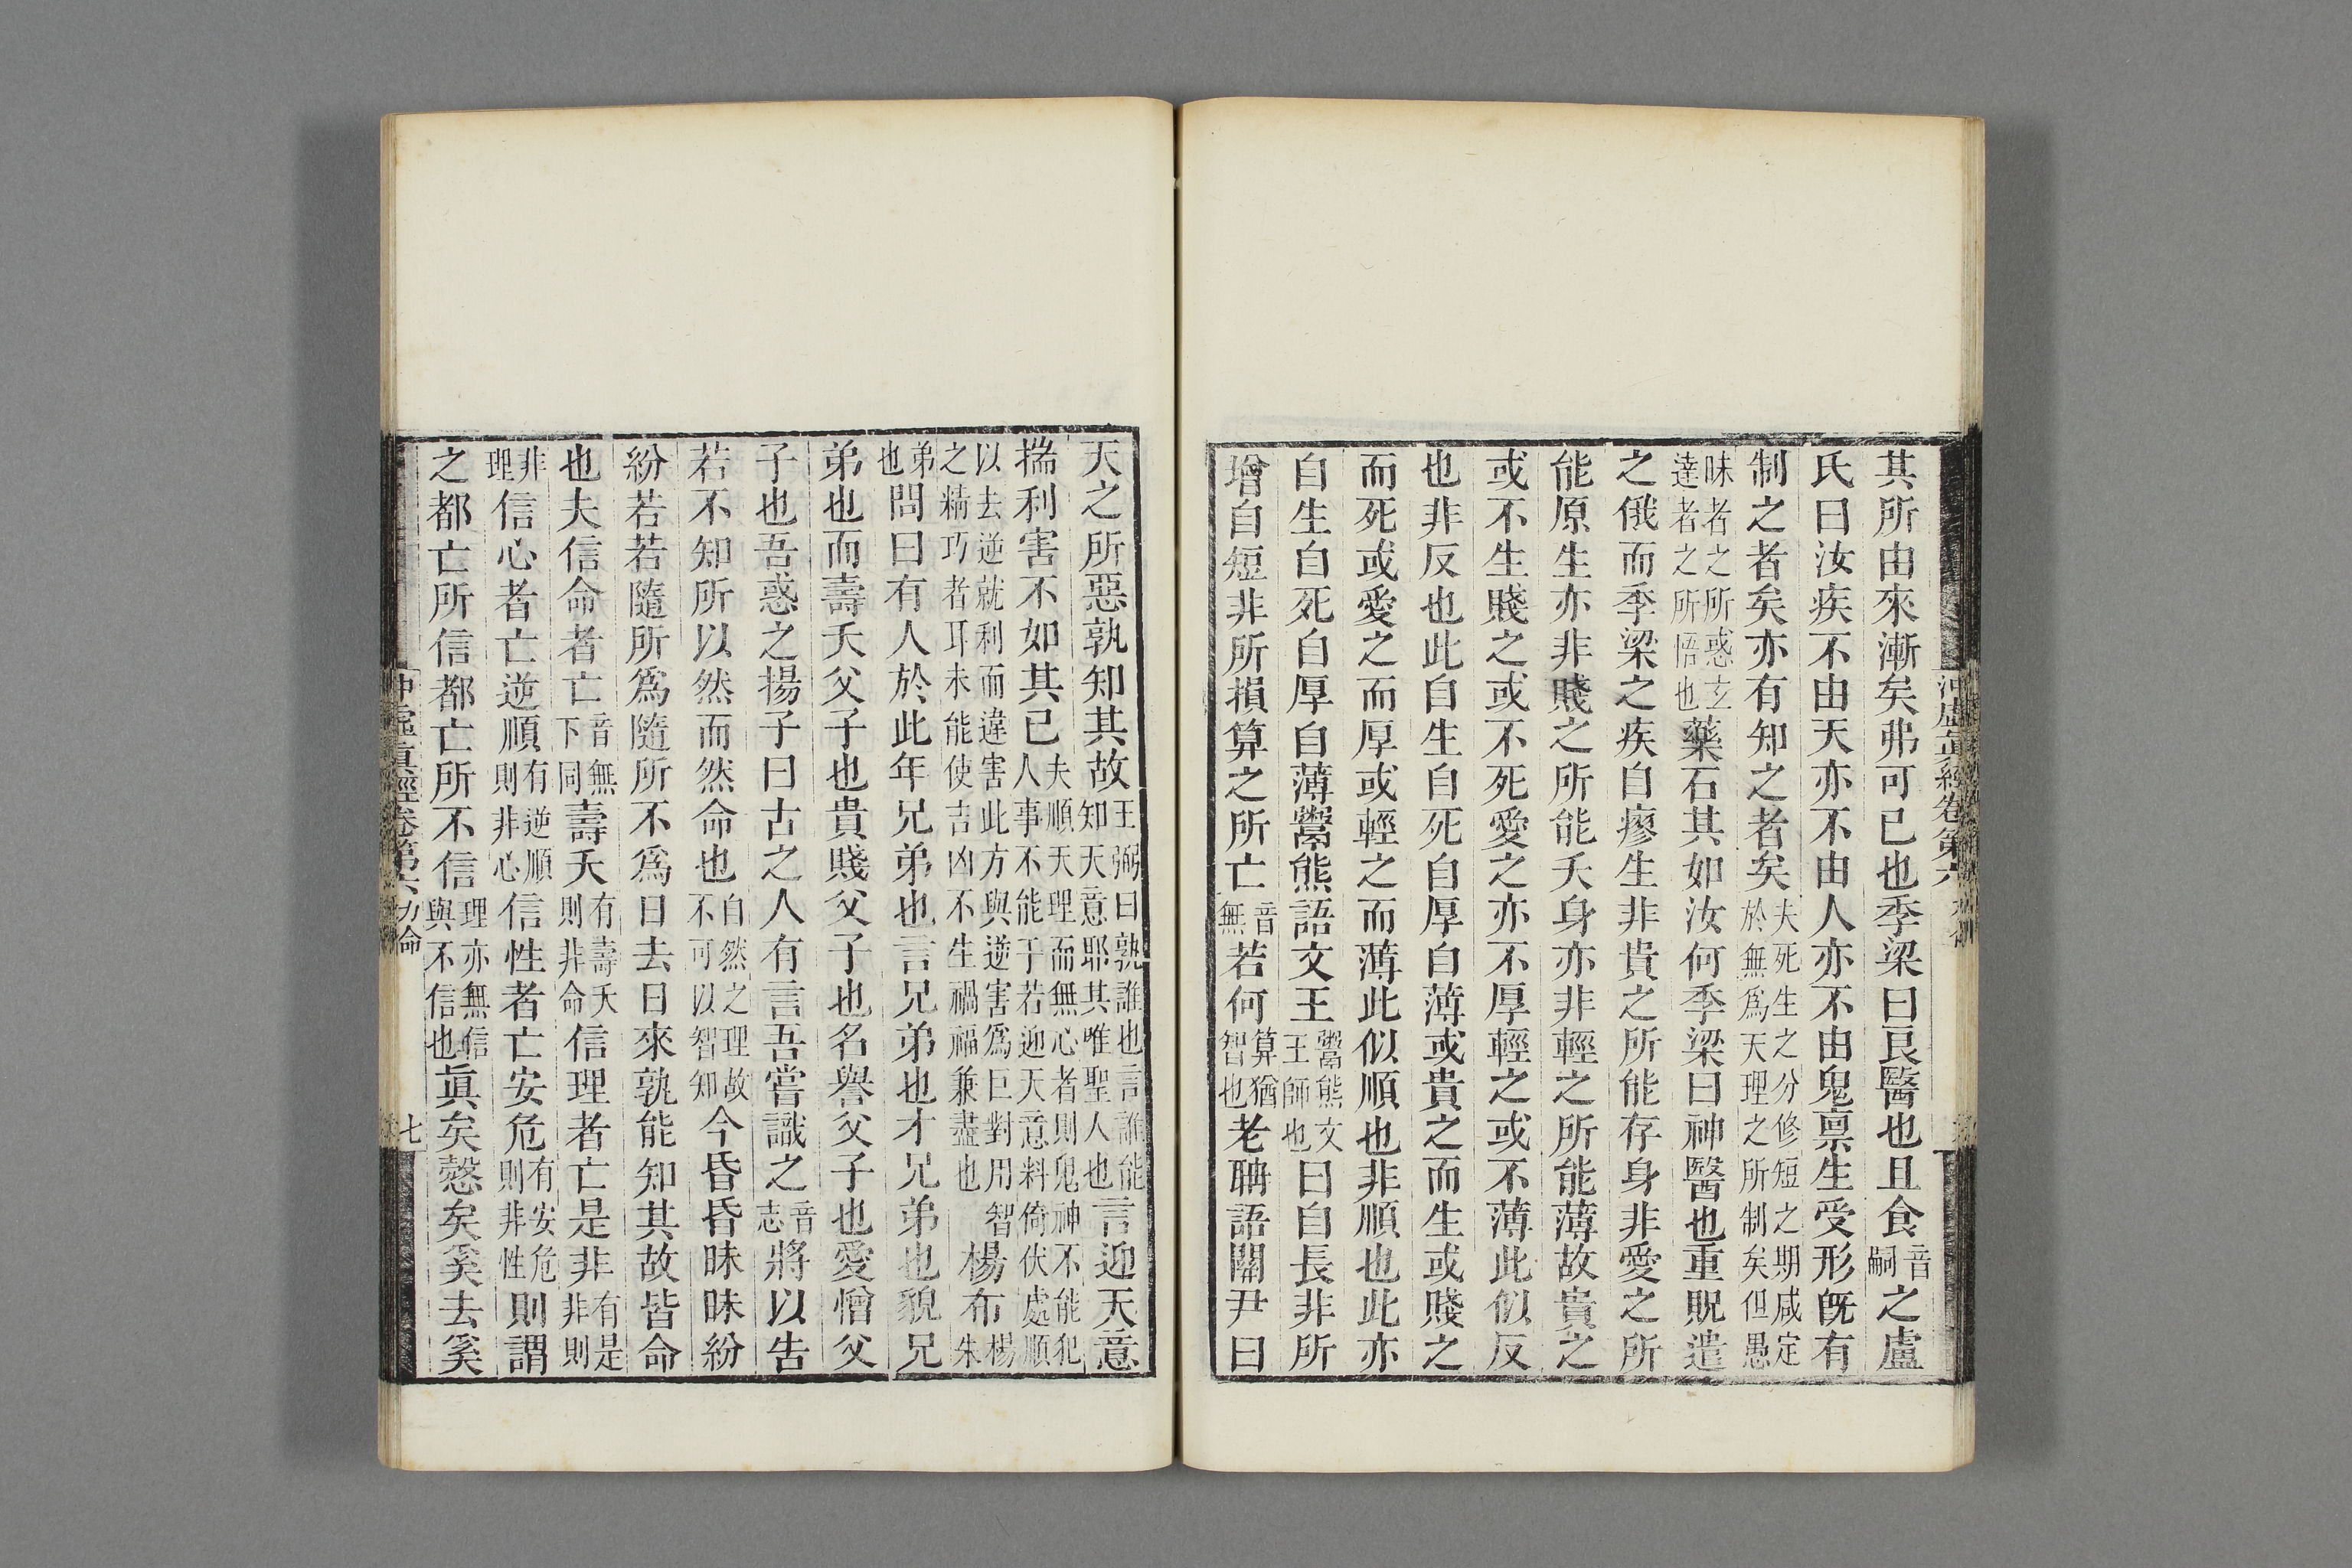 其所由來漸矣弗可已也季梁曰良醫也且食音嗣之盧
氏曰汝疾不由天亦不由人亦不由鬼稟生受形既有
制之者矣亦有知之者矣夫死生之分修短之期咸定於無爲天理之所制矣但愚
昧者之所惑玄達者之所悟也藥石其如汝何季梁曰神醫也重貺遣
之俄而季梁之疾自瘳生非貴之所能存身非愛之所
能原生亦非賤之所能夭身亦非輕之所能薄故貴之
或不生賤之或不死愛之亦不厚輕之或不薄此似反
也非反也此自生自死自厚自薄或貴之而生或賤之
而死或愛之而厚或輕之而薄此似順也非順也此亦
自生自死自厚自薄鬻熊語文王鬻熊文王師也曰自長非所
增自短非所損算之所亡音無若何算猶智也老聃語關尹曰
天之所惡孰知其故王弼曰孰誰也言誰能知天意耶其唯聖人也言迎天意
揣利害不如其已夫順天理而無心者則鬼神不能犯人事不能干若迎天意料倚伏處順
以去逆就利而違害此方與逆害爲巨對用智之精巧者耳未能使吉凶不生禍福兼盡也楊布楊朱
弟也問曰有人於此年兄弟也言兄弟也才兄弟也貌兄
弟也而壽夭父子也貴賤父子也名譽父子也愛憎父
子也吾惑之揚子曰古之人有言吾嘗識之音志將以告
若不知所以然而然命也自然之理故不可以智知今昏昏昧昧紛
紛若若隨所爲隨所不爲日去日來孰能知其故皆命
也夫信命者亡音無下同壽夭有壽夭則非命信理者亡是非有是非則
非理信心者亡逆順有逆順則非心信性者亡安危有安危則非性則謂
之都亡所信都亡所不信理亦無信與不信也眞矣愨矣奚去奚
沖虛眞經卷第六
力命
七